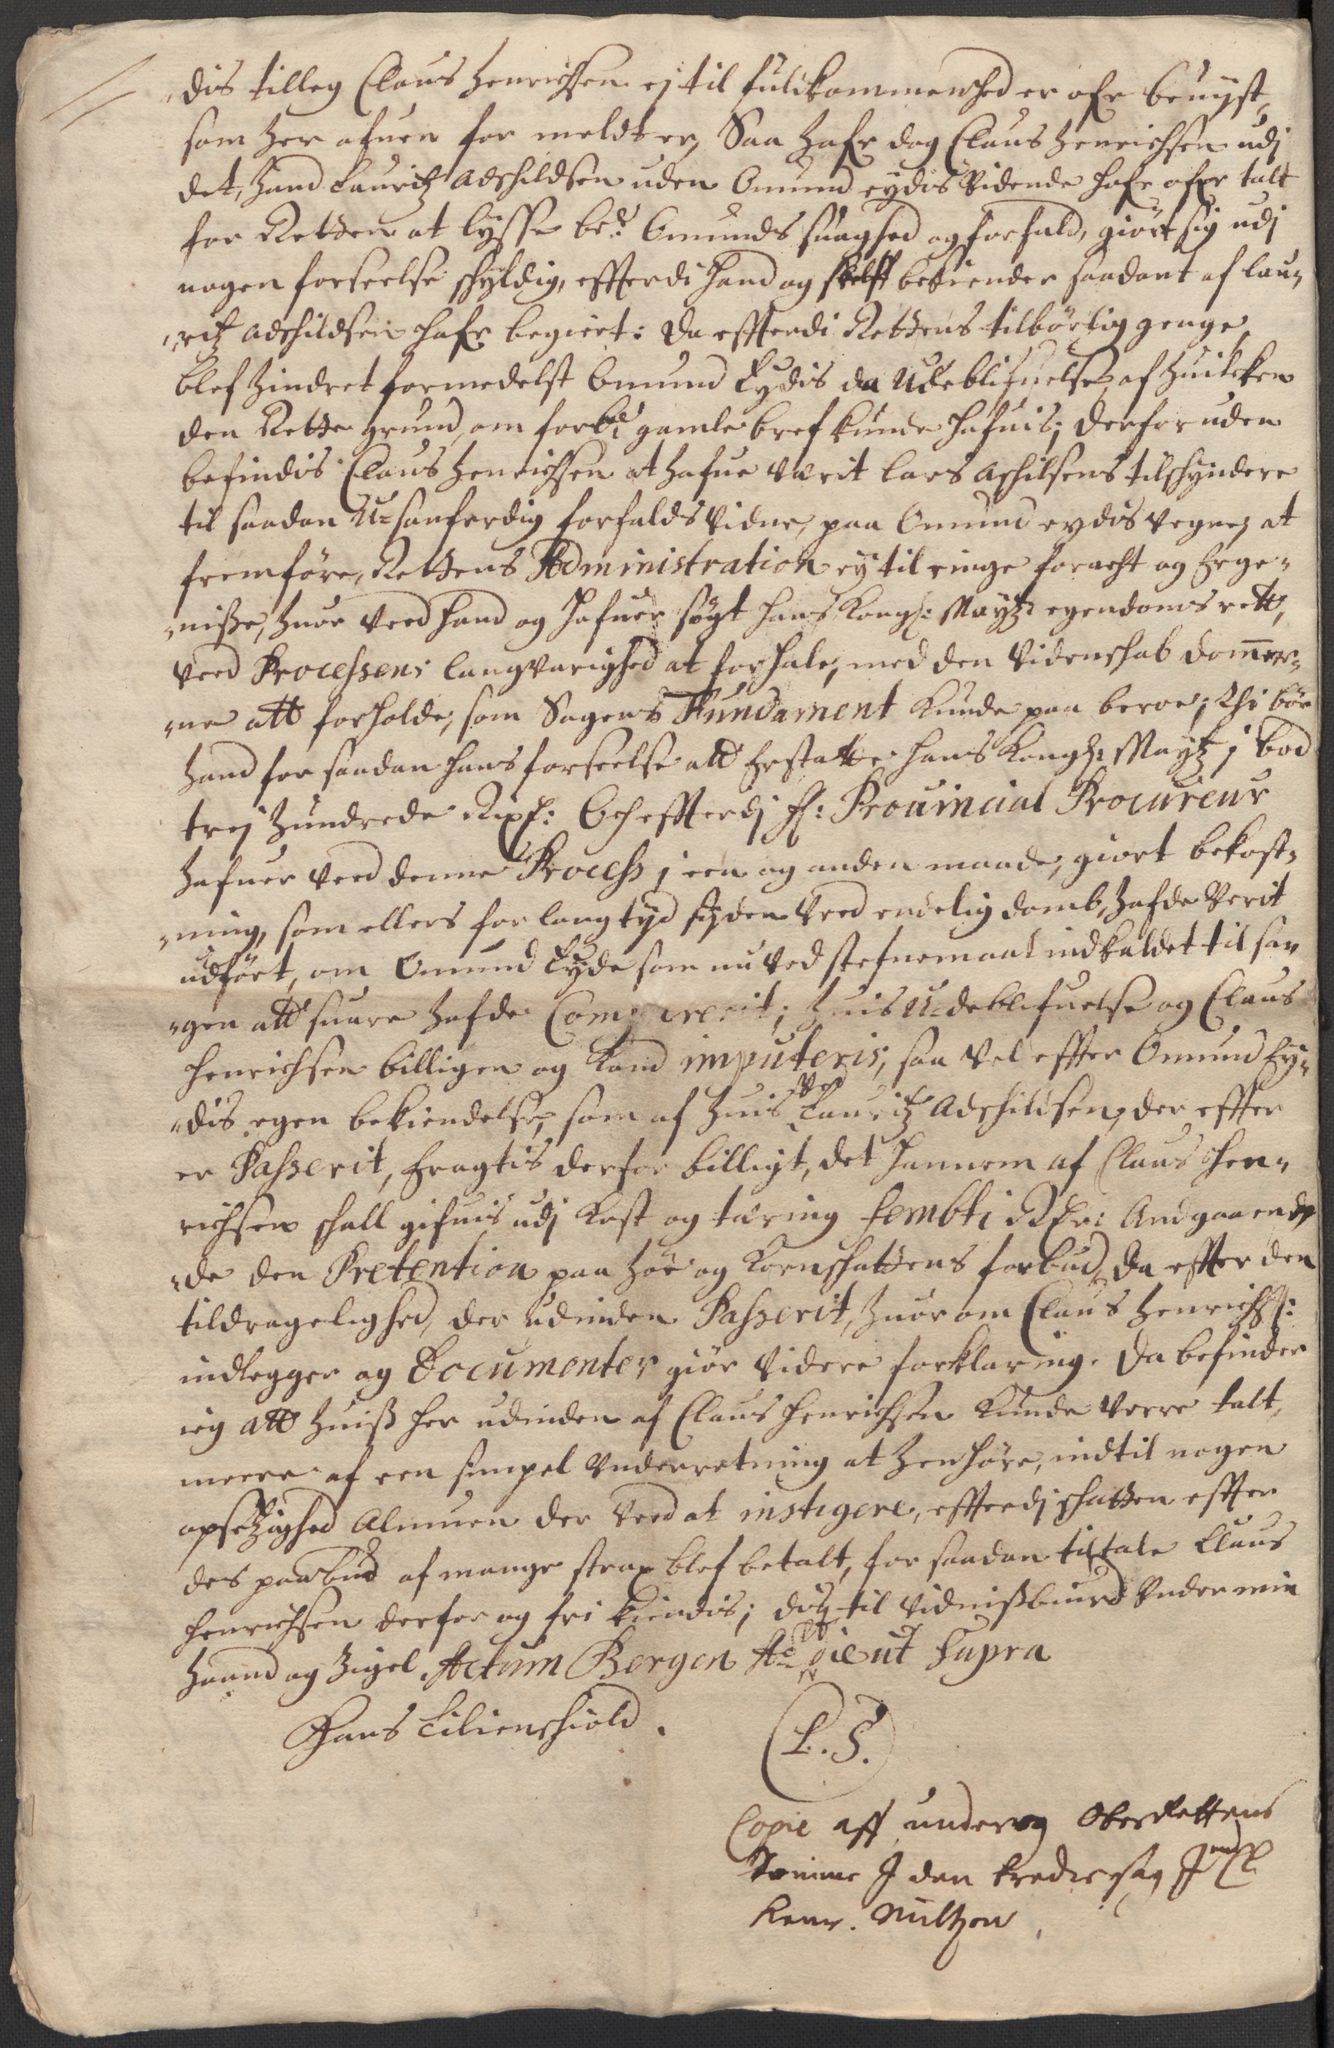 dis tilleg Claus Henrichsen ej til fuldkommenhed er ofr bevyst,
som her ofuen for meldt er, Saa hafr dog Claus Henrichsen udj
det, hand Lauritz Adshildsen uden Omund eydis Vidende hafr ofr talt
for Retten at lysse bete Omunds suaghed og forfald, giört sig udj
nogen forseelse skyldig, effterdi hand og skelff bekiender saadant af Lau¬
ritz Adshildsen hafr begiert: da effterdi Rettens tilbörlig genge,
blef hindret formedelst Omund Eydis da Udeblifuelse, af huilcken
den Rette grund, om forbte gamle bref kunde hafuis; derforuden
befindis Claus Henrichsen at hafue værit Lars Ashilsens tilskyndere
til saadan U-sanferdig forfalds Vidne, paa Omund eydis Vegne, at
fremföre, Rettens Administration ey til ringe foracht og Erge¬
nisse, huor Ved hand og hafuer sögt hans Kongl: Maytz egendoms rett,
Ved Processens langvarighed at forhale, med den Videnskab dommer¬
ne att forholde, som Sagens Fundament kunde paa beroe; Thi bör
hand for saadan hans forseelse att Erstatte hans Kongl: Maytz j bod
trej hundrede Rixdl: Och effterdj H: Prouincial Procureur
hafuer Ved denne Process j een og anden maade, giort bekost¬
ning, som ellers for lang tyd syden Ved endelig domb, hafde Verit
udfört, om Omund Eyde som nu Ved stefnemaal indkaldet til sa¬
gen att suare hafde Comparerit; huis U-deblifuelse og Claus
Henrichsen billigen og kand imputeris, saa Vel effter Omund Ey¬
dis egen bekiendelse, som af huis Ved Lauritz Adshildsen, der effter
er Passerit, Eragtis derfor billigt, det hannem af Claus Hen¬
richsen skall gifuis udj Kost og tæring fembti Rdr: Andgaaende
de den Pretention paa höe og Kornskattens forbud, da effter den
tildragelighed, der udinden Passerit, huor om Claus Henrichs:
indlegger og Documenter giör Videre forklaring. Da befinder
ieg att huiss her udinden af Claus Henrichsen kunde Verre talt,
meere af een simpel Underretning at henhöre, indtil nogen
opsetzighed Almuen der Ved at instigere, effterdj skatten effter
des paabud af mange strax blef betalt, for saadan tiltale Claus
Henrichsen derfor og fri kiendis; dis til Vidnissbiurd Under min
haand og Zigel Actum Bergen Ao die ut Supra
Hans Lilienskiold.
(L.S.)
Copie aff under og OberRettens
Domme J den
Nultzen